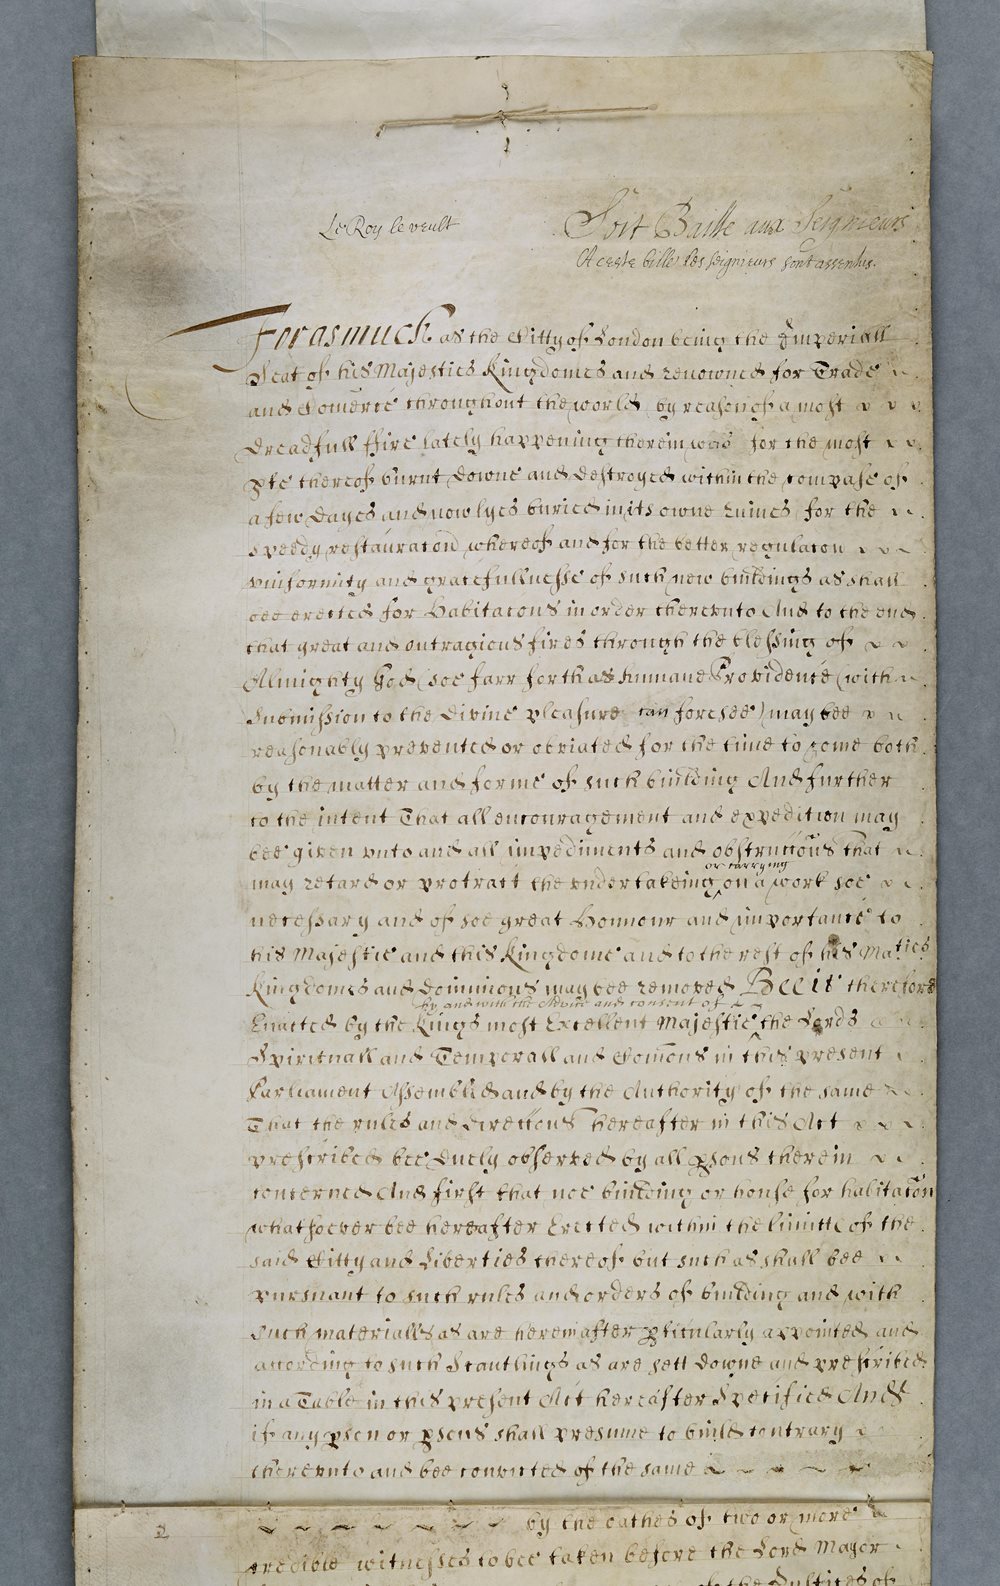 Le Roy le veult
Soit Baille aux Seigneurs
A ceste bille les seigneurs sont assentus.
Forasmuch as the Citty of London being the Imperiall
Seat of his Majesties Kingdomes and renowned for Trade
and Comerce throughout the world by reason of a most
dreadfull ffire lately happening therein was for the most
pte thereof burnt downe and destroyed within the compase of
a few dayes and now lyes buried in its owne ruines for the
speedy restauracon whereof and for the better regulacon
vniformity and gracefullnesse of such new buildings as shall
bee erected for Habitacons in order therevnto And to the end
that great and outragious fires through the blessing of
Almighty God (soe farr forth as humane Providence (with
Submission to the divine pleasure can foresee) may bee
reasonably prevented or obviated for the time to come both
by the matter and forme of such building And further
to the intent That all encouragement and expedition may
bee given vnto and all impediments and obstruccons that
or carrying
may retard or protract the vndertakeing on a work soe
necessary and of soe great Honnour and importance to
his Majestie and this Kingdome and to the rest of his Maties
Kingdomes and dominions may bee removed Bee it therefore
by and with the Advice and consent of
Enacted by the Kings most Excellent Majestie the Lords
Spirituall and Temporall and Comons in this present
Parliament Assembled and by the Authority of the same
That the rules and direccons hereafter in this Act
prescribed bee duely observed by all psons therein
concerned And first that noe building or house for habitacon
whatsoever bee hereafter Erected within the limitts of the
said Citty and Liberties thereof but such as shall bee
pursuant to such rules and orders of building and with
such materialls as are hereinafter pticularly appointed and
according to such Scantlings as are sett downe and prescribed
in a Table in this present Act hereafter Specified And
if any pson or psons shall presume to build contrary
therevnto and bee convicted of the same
2
by the oathes of two or more
credible witnesses to bee taken before the Lord Mayor
of the Justices of